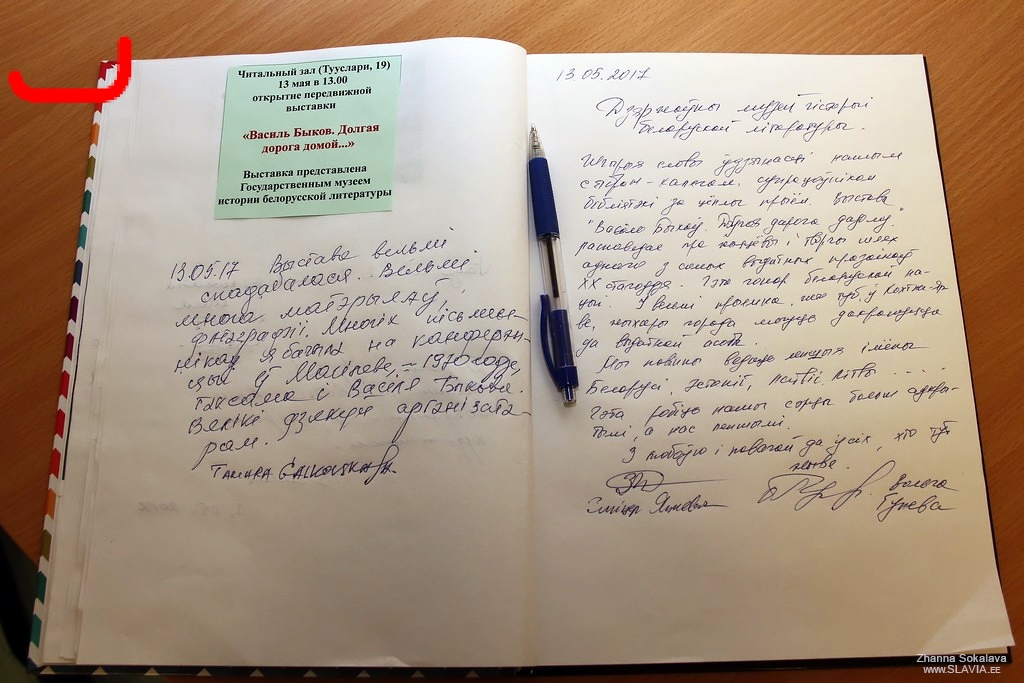 Читальный зал (Тууслари, 19)
13 мая в 13.00
открытие передвижной
выставки
«Василь Быков. Долгая
дорога домой...»
Выставка представлена
Государственным музеем
истории белорусской литературы
13.05.17 Выстава вельмі
спадабалася. Вельмі
многа матэрыялаў,
фотаграфій. Многіх пісьмен-
нікаў я бачыла на канферэн-
цыі ў Магілёве, ≈ 1970 годзе,
таксама і Васіля Быкава.
Вялікі дзякуй арганізата-
рам.
13.05.2017
Дзяржаўны музей гісторыі
беларускай літаратуры.
Шчырыя словы ўдзячнасці нашым
сябрам-калегам, супрацоўнікам
бібліятэкі за цёплы прыём. Выстава
"Васіль Быкаў. Доўгая дарога дадому"
распавядае пра жыццёвы і творчы шлях
аднаго з самых выдатных празаікаў
XX стагоддзя. Гэта гонар беларускай на-
цыі. І вельмі прыемна, што тут, у Кохтла-Яр-
ве, жыхары горада могуць дакрануцца
да выдатнай асобы.
Мы павінны ведаць лепшыя імёны
Беларусі, Эстоніі, Латвіі, Літвы .....
Гэта робіць нашы сэрцы больш адкры-
тымі, а нас лепшымі.
З любоўю і павагай да ўсіх, хто тут
жыве.
Вольга
Гулева
Zhanna Sokalava
www.SLAVIA.EE